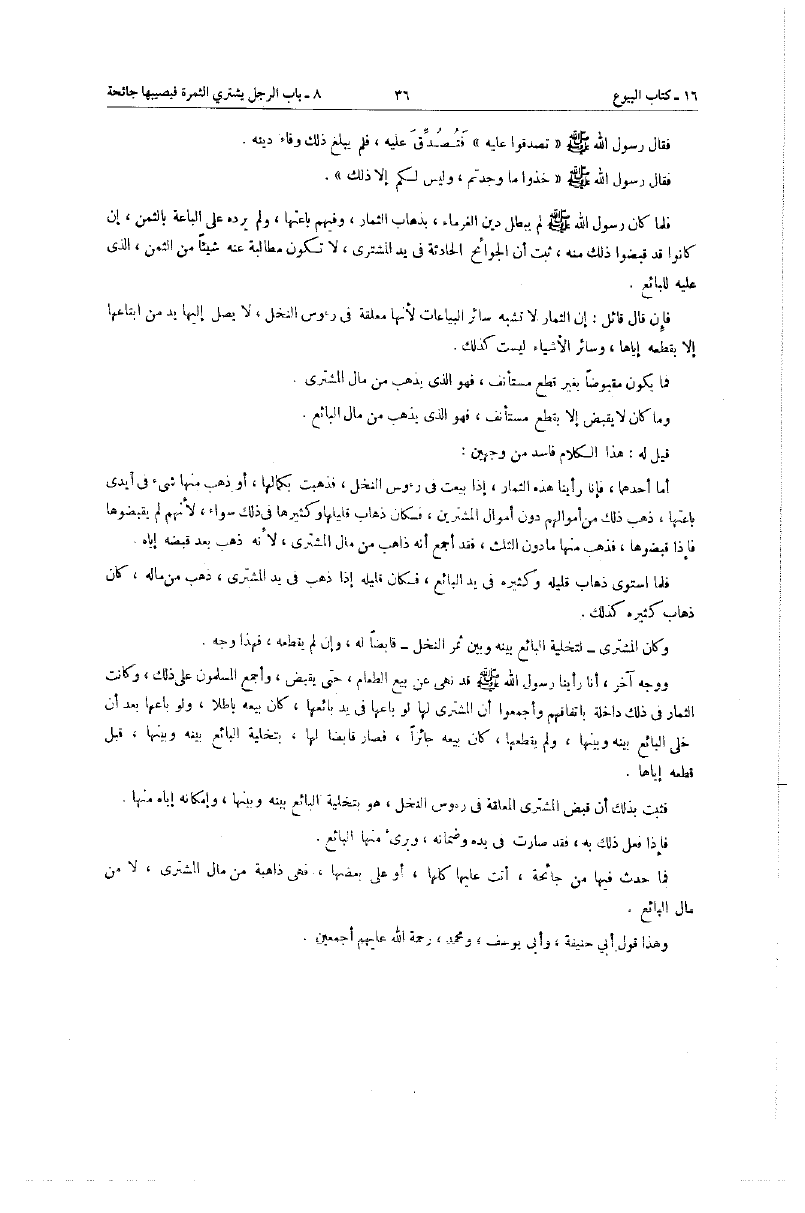 ١٦ ـ كتاب البيوع ٣٦ ٨ ـ باب الرجل يشتري الثمرة فيصيبها جائحة
فقال رسول الله ﷺ « تصدقوا عليه » فَتُصُدِّقَ عليه ، فلم يبلغ ذلك وفاء دينه .
فقال رسول الله ﷺ « خذوا ما وجدتم ، وليس لكم إلا ذلك » .
فلما كان رسول الله ﷺ لم يبطل دين الغرماء ، بذهاب الثمار ، وفيهم باعتها ، ولم يرده على الباعة بالثمن ، إن
كانوا قد قبضوا ذلك منه ، ثبت أن الجوائح الحادثة فى يد المشترى ، لا تكون مطالبة عنه شيئاً من الثمن ، الذى
عليه للبائع .
فإن قال قائل : إن الثمار لا تشبه سائر البياعات لأنها معلقة فى رءوس النخل ، لا يصل إليها يد من ابتاعها
إلا بقطعه إياها ، وسائر الأشياء ليست كذلك .
فما يكون مقبوضاً بغير قطع مستأنف ، فهو الذى يذهب من مال المشترى .
وما كان لا يقبض إلا بقطع مستأنف ، فهو الذى يذهب من مال البائع .
قيل له : هذا الكلام فاسد من وجهين :
أما أحدها ، فإنا رأينا هذه الثمار ، إذا بيعت فى رءوس النخل ، فذهبت بكمالها ، أو ذهب منها شىء فى أيدى
باعتها ، ذهب ذلك من أموالهم دون أموال المشترين ، فكان ذهاب قليلها وكثيرها فى ذلك سواء ، لأنهم لم يقبضوها
فإذا قبضوها ، فذهب منها مادون الثلث ، فقد أجمع أنه ذاهب من مال المشترى ، لأنه ذهب بعد قبضه إياه .
فلما استوى ذهاب قليله وكثيره فى يد البائع ، فكان قليله إذا ذهب فى يد المشترى ، ذهب من ماله ، كان
ذهاب كثيره كذلك .
وكان المشترى ـ لتخلية البائع بينه وبين ثمر النخل ـ قابضاً له ، وإن لم يقطعه ، فهذا وجه .
ووجه آخر ، أنا رأينا رسول الله ﷺ قد نهى عن بيع الطعام ، حتى يقبض ، وأجمع المسلمون على ذلك ، وكانت
الثمار فى ذلك داخلة باتفاقهم وأجمعوا أن المشترى لها لو باعها فى يد بائعها ، كان بيعه باطلا ، ولو باعها بعد أن
خلى البائع بينه وبينها ، ولم يقطعها ، كان بيعه جائزاً ، فصار قابضا لها ، بتخلية البائع بينه وبينها ، قبل
قطعه إياها .
فثبت بذلك أن قبض المشترى المعلقة فى رءوس النخل ، هو بتخلية البائع بينه وبينها ، وإمكانه إياه منها .
فإذا فعل ذلك به ، فقد صارت فى يده وضمانه ، وبرىء منها البائع .
فما حدث فيها من جائحة ، أتت عليها كلها ، أو على بعضها ، فهى ذاهبة من مال المشترى ، لا من
مال البائع .
وهذا قول أبي حنيفة ، وأبى يوسف ، ومحمد ، رحمة الله عليهم أجمعين .